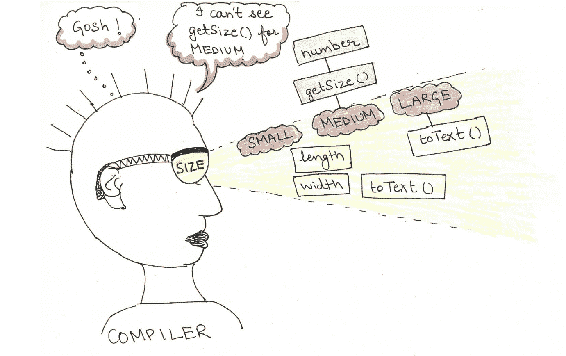 Gosh !
I can't see
getSize() for
MEDIUM
number
getSize()
LARGE
MEDIUM
SMALL
toText()
length
width
toText()
SIZE
COMPILER